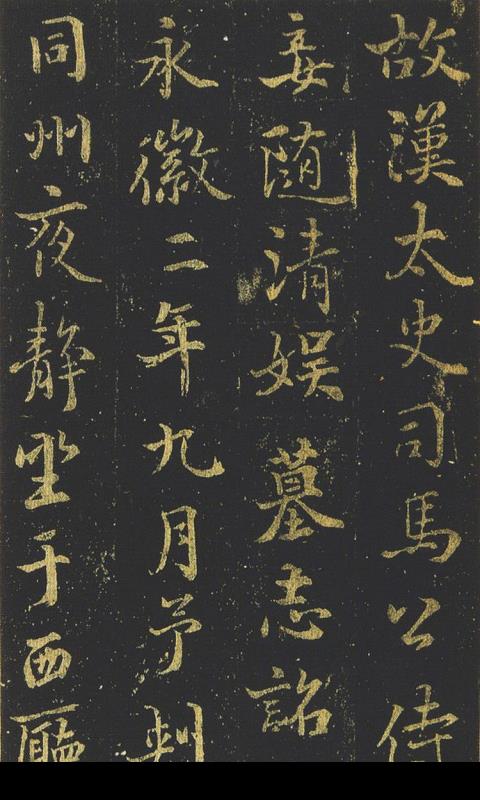 故漢太史司馬公侍
妾随清娱墓志銘
永徽二年九月予判
同州夜静坐于西廳